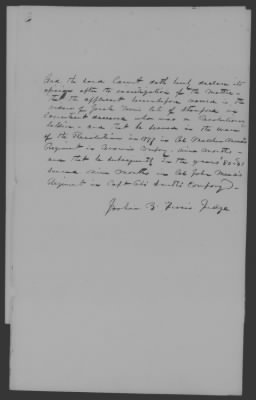 And the said Court doth hereby declare its
opinion after the investigation of the matter -
that the applicant heretofore named is the
widow of late of Stamford in
Connecticut deceased who was a Revolutionary
Soldier - and that he served in the War
of the Revolution in Col
Regiment in Company - nine months -
and that he subsequently in the years 80 - 81
served nine months in Col John Mead's
Regiment in Capt Smith's Company -
Joshua B. Ferris Judge